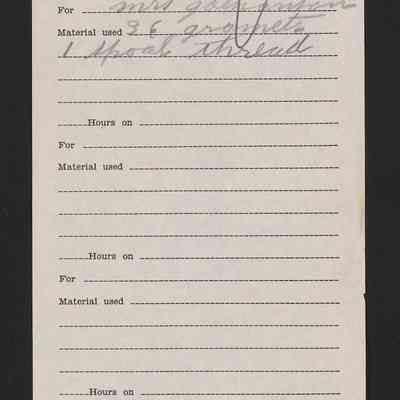 For Mrs
Material used 36 gromets
1 spoal thread
Hours on
For
Material used
Hours on
For
Material used
Hours on